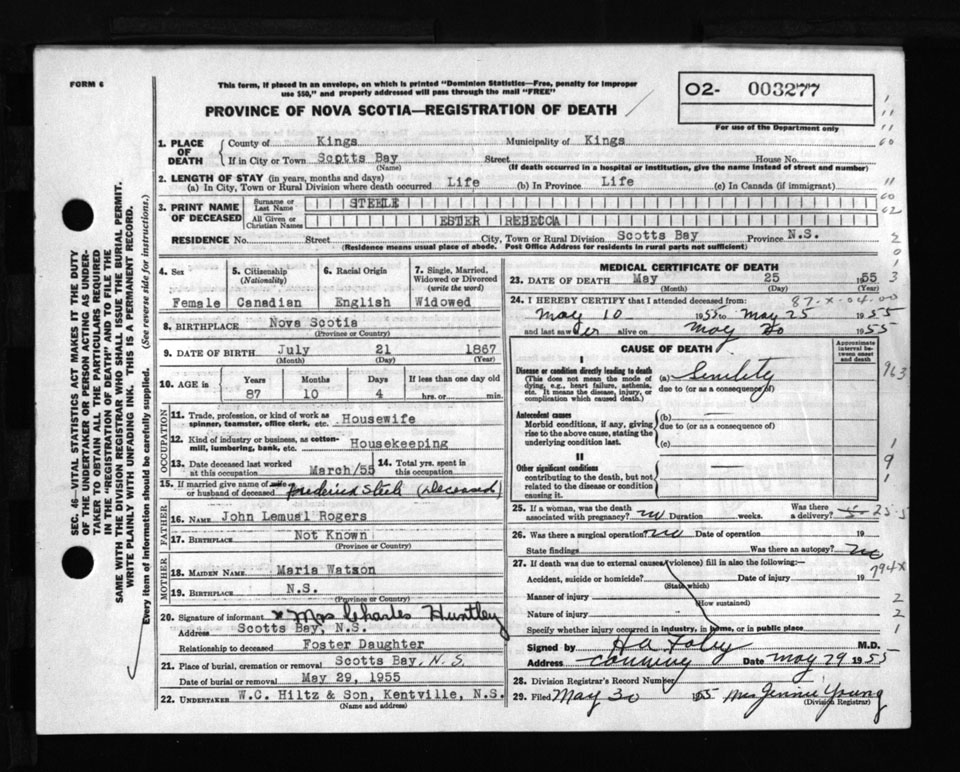 FORM 6
This form, if placed in an envelope, on which is printed "Dominion Statistics—Free, penalty for improper
use $50," and properly addressed will pass through the mail "FREE"
PROVINCE OF NOVA SCOTIA—REGISTRATION OF DEATH
O2- 003277
For use of the Department only
SEC. 46 — VITAL STATISTICS ACT MAKES IT THE DUTY
OF THE UNDERTAKER OR PERSON ACTING AS UNDER-
TAKER TO OBTAIN ALL THE PARTICULARS REQUIRED
IN THE "REGISTRATION OF DEATH" AND TO FILE THE
SAME WITH THE DIVISION REGISTRAR WHO SHALL ISSUE THE BURIAL PERMIT.
WRITE PLAINLY WITH UNFADING INK. THIS IS A PERMANENT RECORD.
Every item of information should be carefully supplied. (See reverse side for instructions.)
1. PLACE OF DEATH
County of Kings Municipality of Kings
If in City or Town Scotts Bay Street House No.
(Name) (If death occurred in a hospital or institution, give the name instead of street and number)
2. LENGTH OF STAY (in years, months and days)
(a) In City, Town or Rural Division where death occurred Life (b) In Province Life (c) In Canada (if immigrant)
3. PRINT NAME OF DECEASED
Surname or Last Name STEELE
All Given or Christian Names ESTER REBECCA
RESIDENCE No. Street City, Town or Rural Division Scotts Bay Province N.S.
(Residence means usual place of abode. Post Office Address for residents in rural parts not sufficient)
4. Sex
Female
5. Citizenship (Nationality)
Canadian
6. Racial Origin
English
7. Single, Married, Widowed or Divorced (write the word)
Widowed
8. BIRTHPLACE Nova Scotia
(Province or Country)
9. DATE OF BIRTH July 21 1867
(Month) (Day) (Year)
10. AGE in Years Months Days If less than one day old
87 10 4 hrs. or min.
OCCUPATION
11. Trade, profession, or kind of work as
spinner, teamster, office clerk, etc. Housewife
12. Kind of industry or business, as cotton-
mill, lumbering, bank, etc. Housekeeping
13. Date deceased last worked
at this occupation March/55
14. Total yrs. spent in
this occupation
15. If married give name of wife
or husband of deceased Frederick Steele (Deceased)
FATHER
16. NAME John Lemual Rogers
17. BIRTHPLACE Not Known
(Province or Country)
MOTHER
18. MAIDEN NAME Maria Watson
19. BIRTHPLACE N.S.
(Province or Country)
20. Signature of informant x Mrs Charles Huntley
Address Scotts Bay, N.S.
Relationship to deceased Foster Daughter
21. Place of burial, cremation or removal Scotts Bay, N.S.
Date of burial or removal May 29, 1955
22. UNDERTAKER W.C. Hiltz & Son, Kentville, N.S.
(Name and address)
MEDICAL CERTIFICATE OF DEATH
23. DATE OF DEATH May 25 1955
(Month) (Day) (Year)
24. I HEREBY CERTIFY that I attended deceased from: 87-X-04-00
May 10 1955 to May 25 1955
and last saw her alive on May 20 1955
CAUSE OF DEATH
Approximate interval between onset and death
I
Disease or condition directly leading to death (a) Senility
(This does not mean the mode of
dying, e.g., heart failure, asthenia,
etc. It means the disease, injury, or
complication which caused death.)
due to (or as a consequence of)
Antecedent causes (b)
Morbid conditions, if any, giving
rise to the above cause, stating the
underlying condition last.
due to (or as a consequence of)
(c)
II
Other significant conditions
contributing to the death, but not
related to the disease or condition
causing it.
25. If a woman, was the death
associated with pregnancy? no Duration weeks. Was there
a delivery?
26. Was there a surgical operation? no Date of operation 19
State findings Was there an autopsy? no
27. If death was due to external causes (violence) fill in also the following:—
Accident, suicide or homicide? Date of injury 19
(State which)
Manner of injury
(How sustained)
Nature of injury
Specify whether injury occurred in industry, in home, or in public place
Signed by H A Foley M.D.
Address Canning Date May 29 1955
28. Division Registrar's Record Number
29. Filed May 30 55 Mrs Jennie Young
(Division Registrar)
963
794X